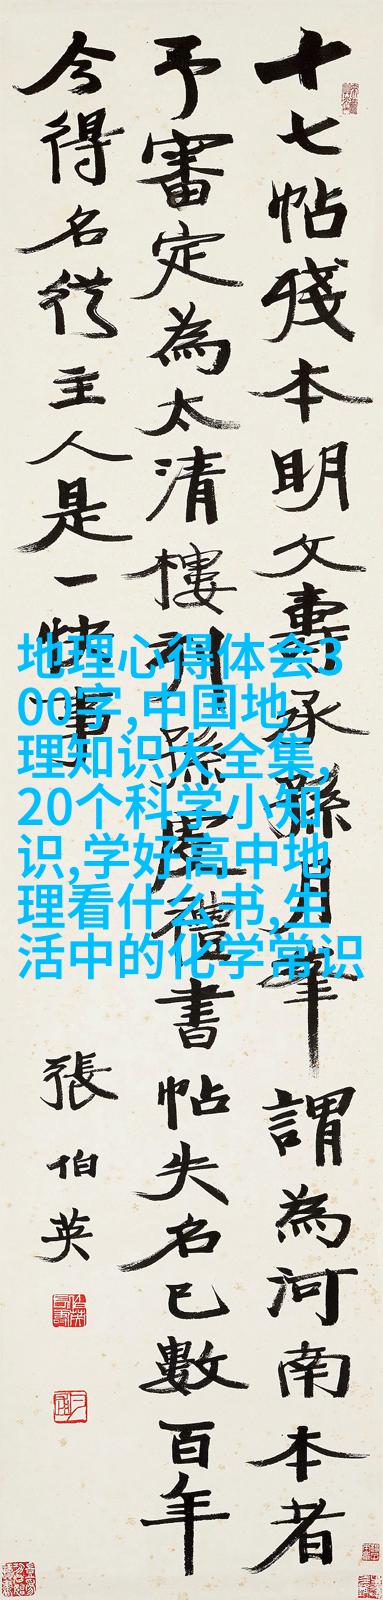 十七帖殘本明文壽承孫月峯謂為河南本者
予審定為太清樓刊孫虔禮書帖失名已數百年
今得名從主人是一快事
張伯英
地理心得体会3
00字,中国地
理知识大全集,
20个科学小知
识,学好高中地
理看什么书,生
活中的化学常识